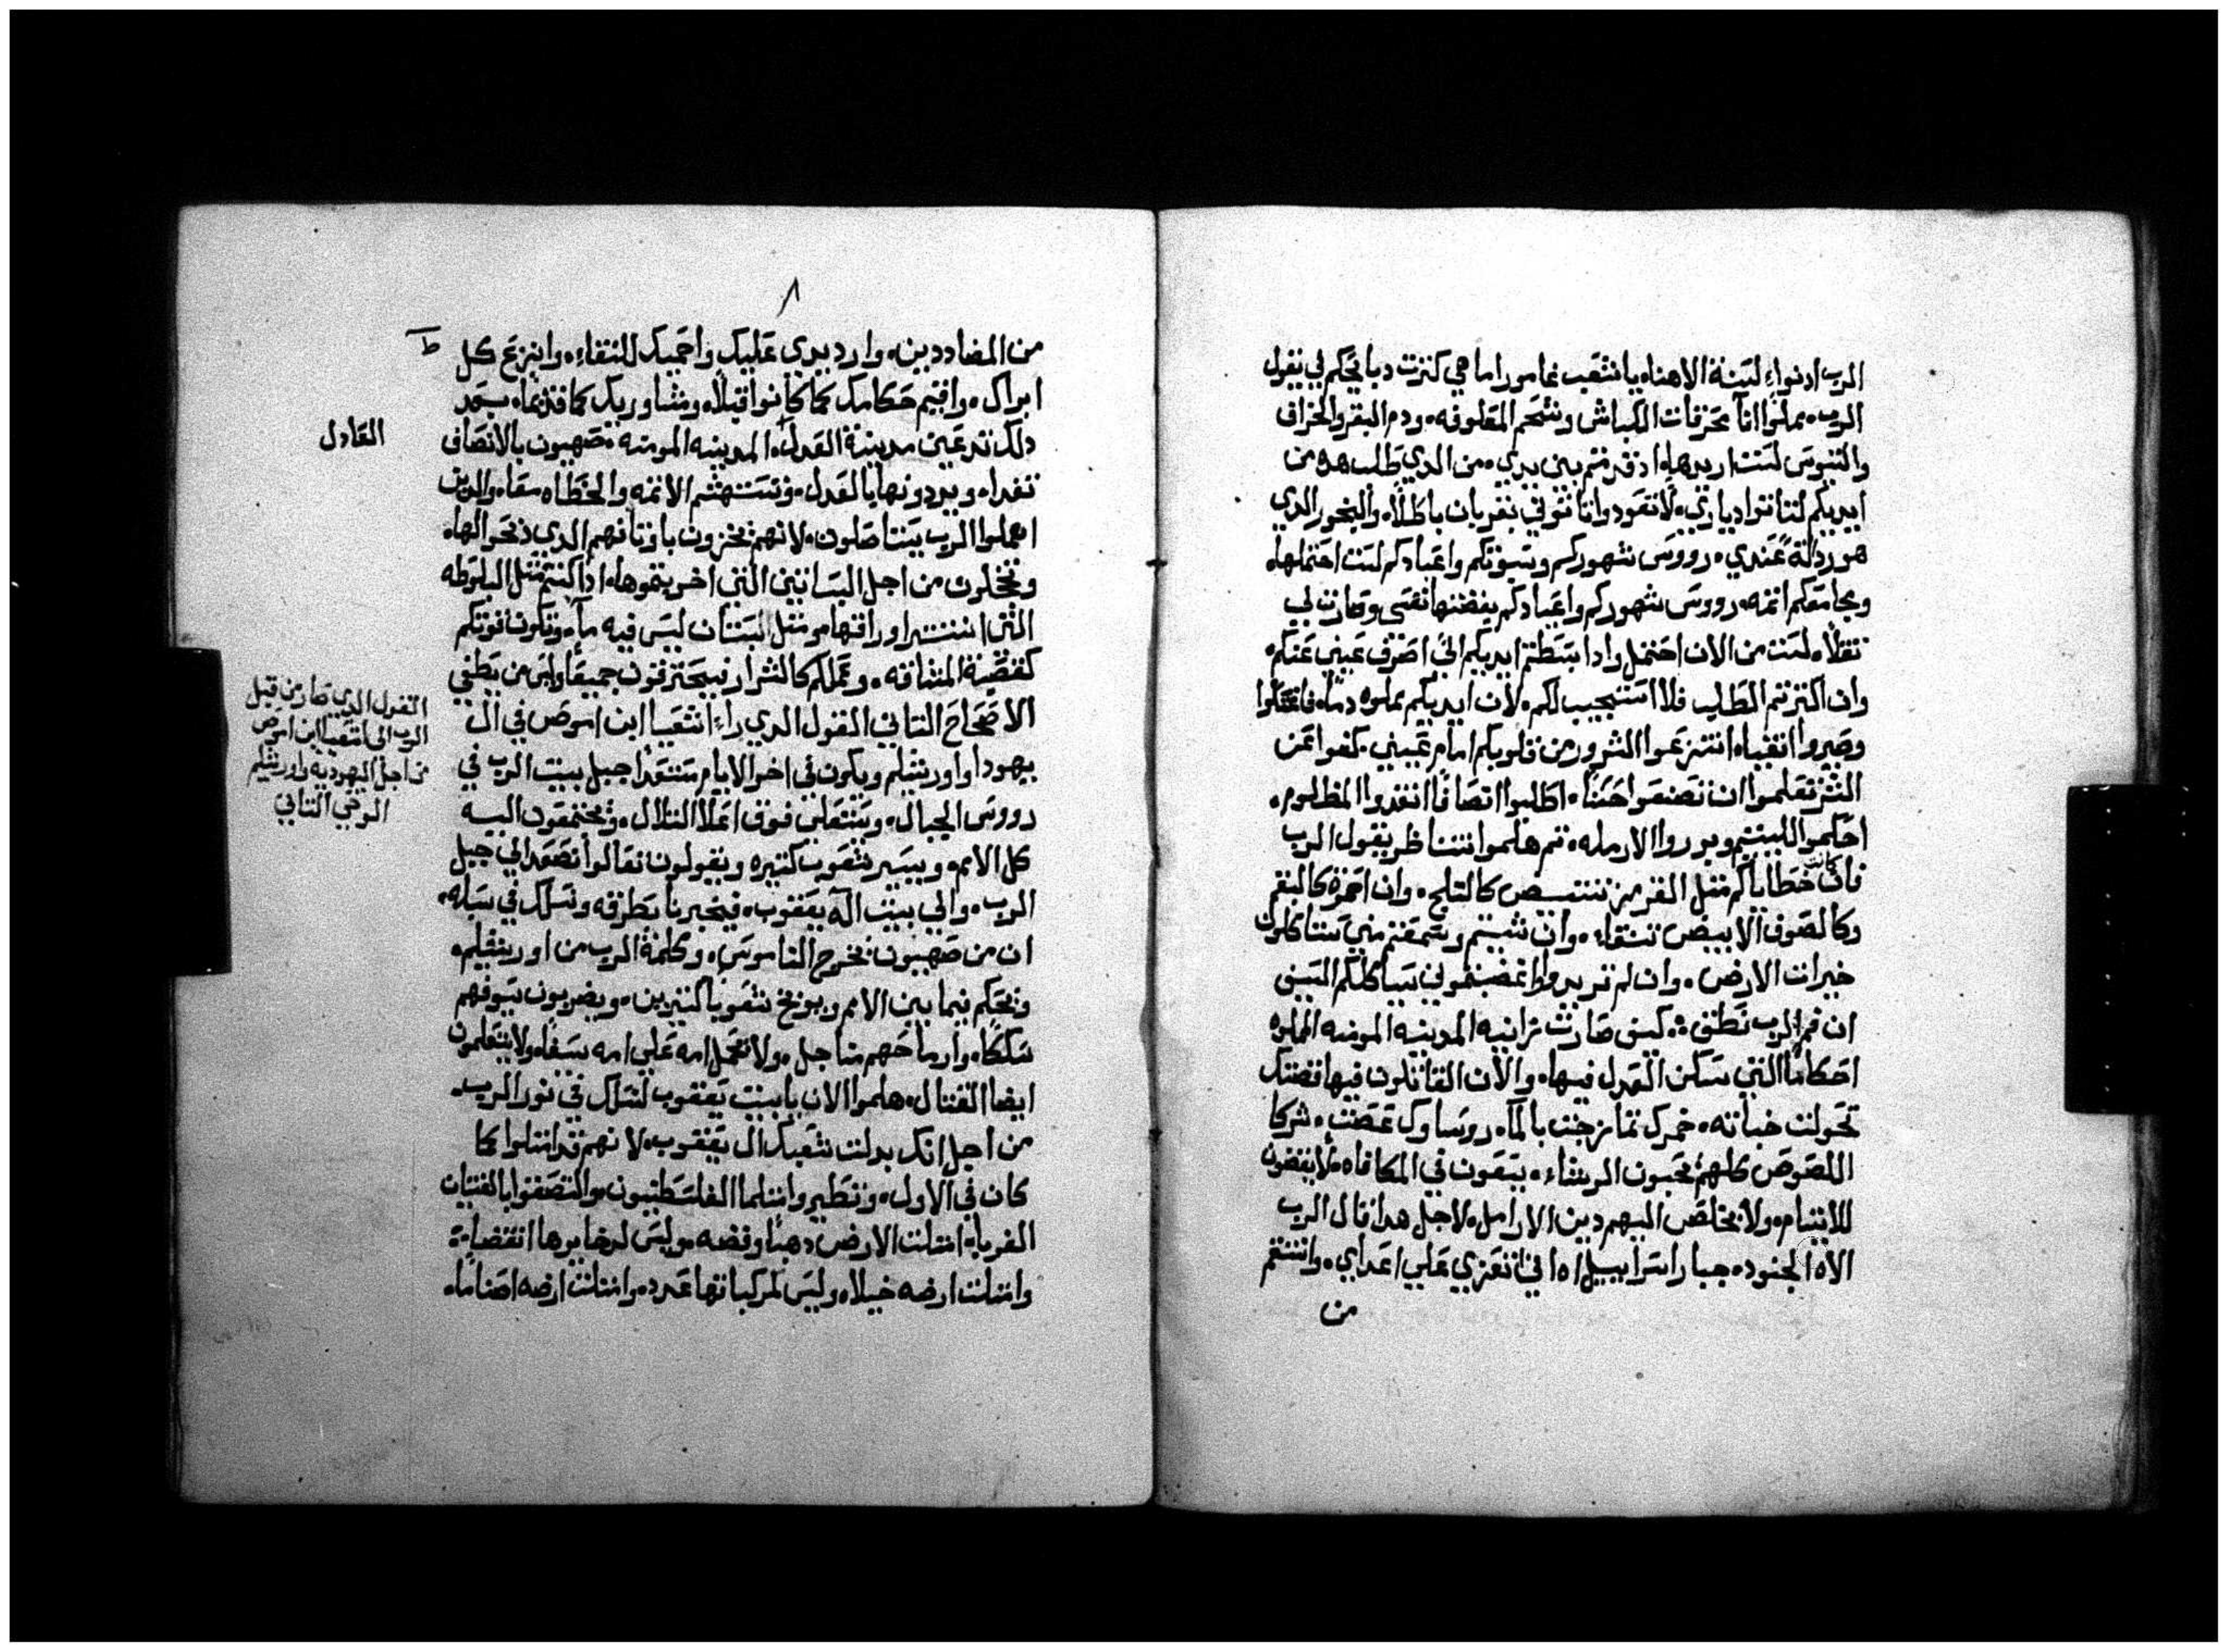 الرب ادنواء لسنة الاهنا يا شعب غامورا ما هي كثرت دبايحكم لي يقول
الرب مملوا انا محرقات الكباش وشحم المعلوفه ودم البقر والخراف
والتيوس لست اريدها اد قدمتم بين يدي من الدي طلب هده من
ايديكم لتاتوا دياري لا تعودوا تاتوني بقربان باطلا والبخور الدي
هو ردالة عندي رووس شهوركم وسبوتكم واعيادكم لست احتملها
ومجامعكم اتمه رووس شهوركم واعيادكم يغضها نفسي وصارت لي
تقلا لست من الان احتمل وادا بسطتم ايديكم الي اصرف عيني عنكم
وان اكترتم الطلب فلا استجيب لكم لان ايديكم مملوه دما فاغتسلوا
وصيروا انقياء انتزعوا الشرور من قلوبكم امام عيني كفوا عن
الشر تعلموا ان تصنعوا حسنا اطلبوا انصافا انقدوا المظلوم
احكموا لليتيم وبرروا الارمله تم هلموا نتناظر يقول الرب
فان كانت خطاياكم متل القرمز تبيض كالتلج وان احمرة كالبقم
وكالصوف الابيض تنقاء وان شيتم وسمعتم مني ستاكلون
خيرات الارض وان لم تريدوا واغضبتموني سياكلكم السيف
ان فم الرب نطق كيف صارت زانيه المدينه المومنه المملوه
احكاما التي سكن العدل فيها والان القاتلون فيها فضتك
تحولت خباته خمرك تمازجت بالماء روساوك عصت شركا
اللصوص كلهم محبون الرشاء يتبعون في المكافاه لا يقضون
للايتام ولا يخلص اليهم دين الارامل لاجل هدا قال الرب
الاه الجنود جبار اسراييل اه اني اتعزي علي اعداي وانتقم
من
٨
من المضاددين وارد يدي عليك واحميك للنقاء وانزع كل
ط
ابراك واقيم حكامك كما كانوا قبلا ومشاوريك كما قديما بعد
دلك تدعين مدينة العدل المدينه المومنه صهيون بالانصاف
العادل
تفدا ويردونها بالعدل وتستهشم الاتمه والخطاه معا والدين
اهملوا الرب يستاصلون لانهم يخزون باوتانهم الدي دبحوا لها
وتخجلون من اجل البساتين التي اخربتموها ادا كنتم متل البلوطه
التي انتتر اوراقها ومتل البستان ليس فيه ماء وتكون قوتكم
كقصبة المشاقه وعملكم كالشرار فيحترقون جميعا وليس من يطفي
الاصحاح التاني القول الدي راء اشعيا ابن اموص في ال
القول الدي صار من قبل
الرب الى اشعيا ابن اموص
من اجل اليهوديه واورشليم
الوحي التاني
يهودا واورشليم ويكون في اخر الايام مستعدا جبل بيت الرب في
رووس الجبال ويستعلي فوق اعلا التلال وتجتمعون اليه
كل الامم ويسير شعوب كتيره ويقولون تعالوا نصعد الي جبل
الرب والي بيت اله يعقوب فيخبرنا بطرقه ونسلك في سبله
ان من صهيون تخرج الناموس وكلمة الرب من اورشليم
ويحكم فيما بين الامم ويوبخ شعوبا كتيرين ويضربون سيوفهم
سككا وارماحهم مناجل ولا تحمل امه علي امه سيفا ولا يتعلمون
ايضا القتال هلموا الان يا بيت يعقوب لنسلك في نور الرب
من اجل انك بدلت شعبك ال يعقوب لانهم قد امتلوا كما
كان في الاول وتطير وامتلما الفلسطنيون والتصقوا بالفتيان
الغربا امتلت الارض دهبا وفضه وليس لدخايرها انقضاية
وامتلت ارضه خيلا وليس لمركباتها عدد وامتلت ارضه اصناما